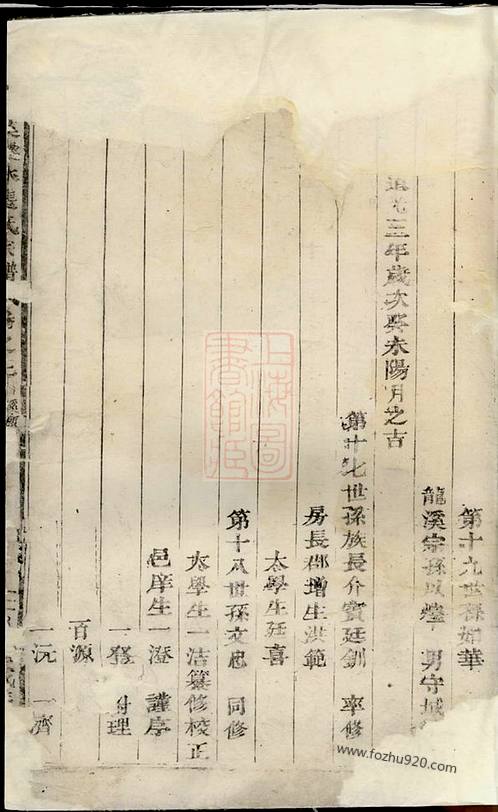 第十九世孫如華
龍溪宗孫以瑩 男守城
道光三年歲次癸未陽月之吉
第十七世孫族長介賓廷釧 率修
房長郡增生洪範
太學生廷喜
第十八世孫文忠 同修
太學生一洁纂修校正
邑庠生一澄 謹序
一發 理
百源
一沅 一濟
氏宗譜
上海圖書館藏
www.fozhu920.com